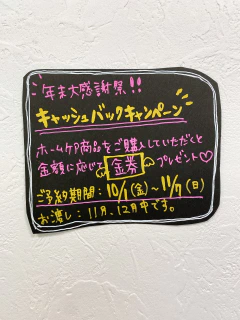 年末大感謝祭!!
キャッシュバックキャンペーン
ホームケア商品をご購入していただくと
金額に応じて金券プレゼント♡
ご予約期間：10/1(金)～11/7(日)
お渡し：11月、12月中です。